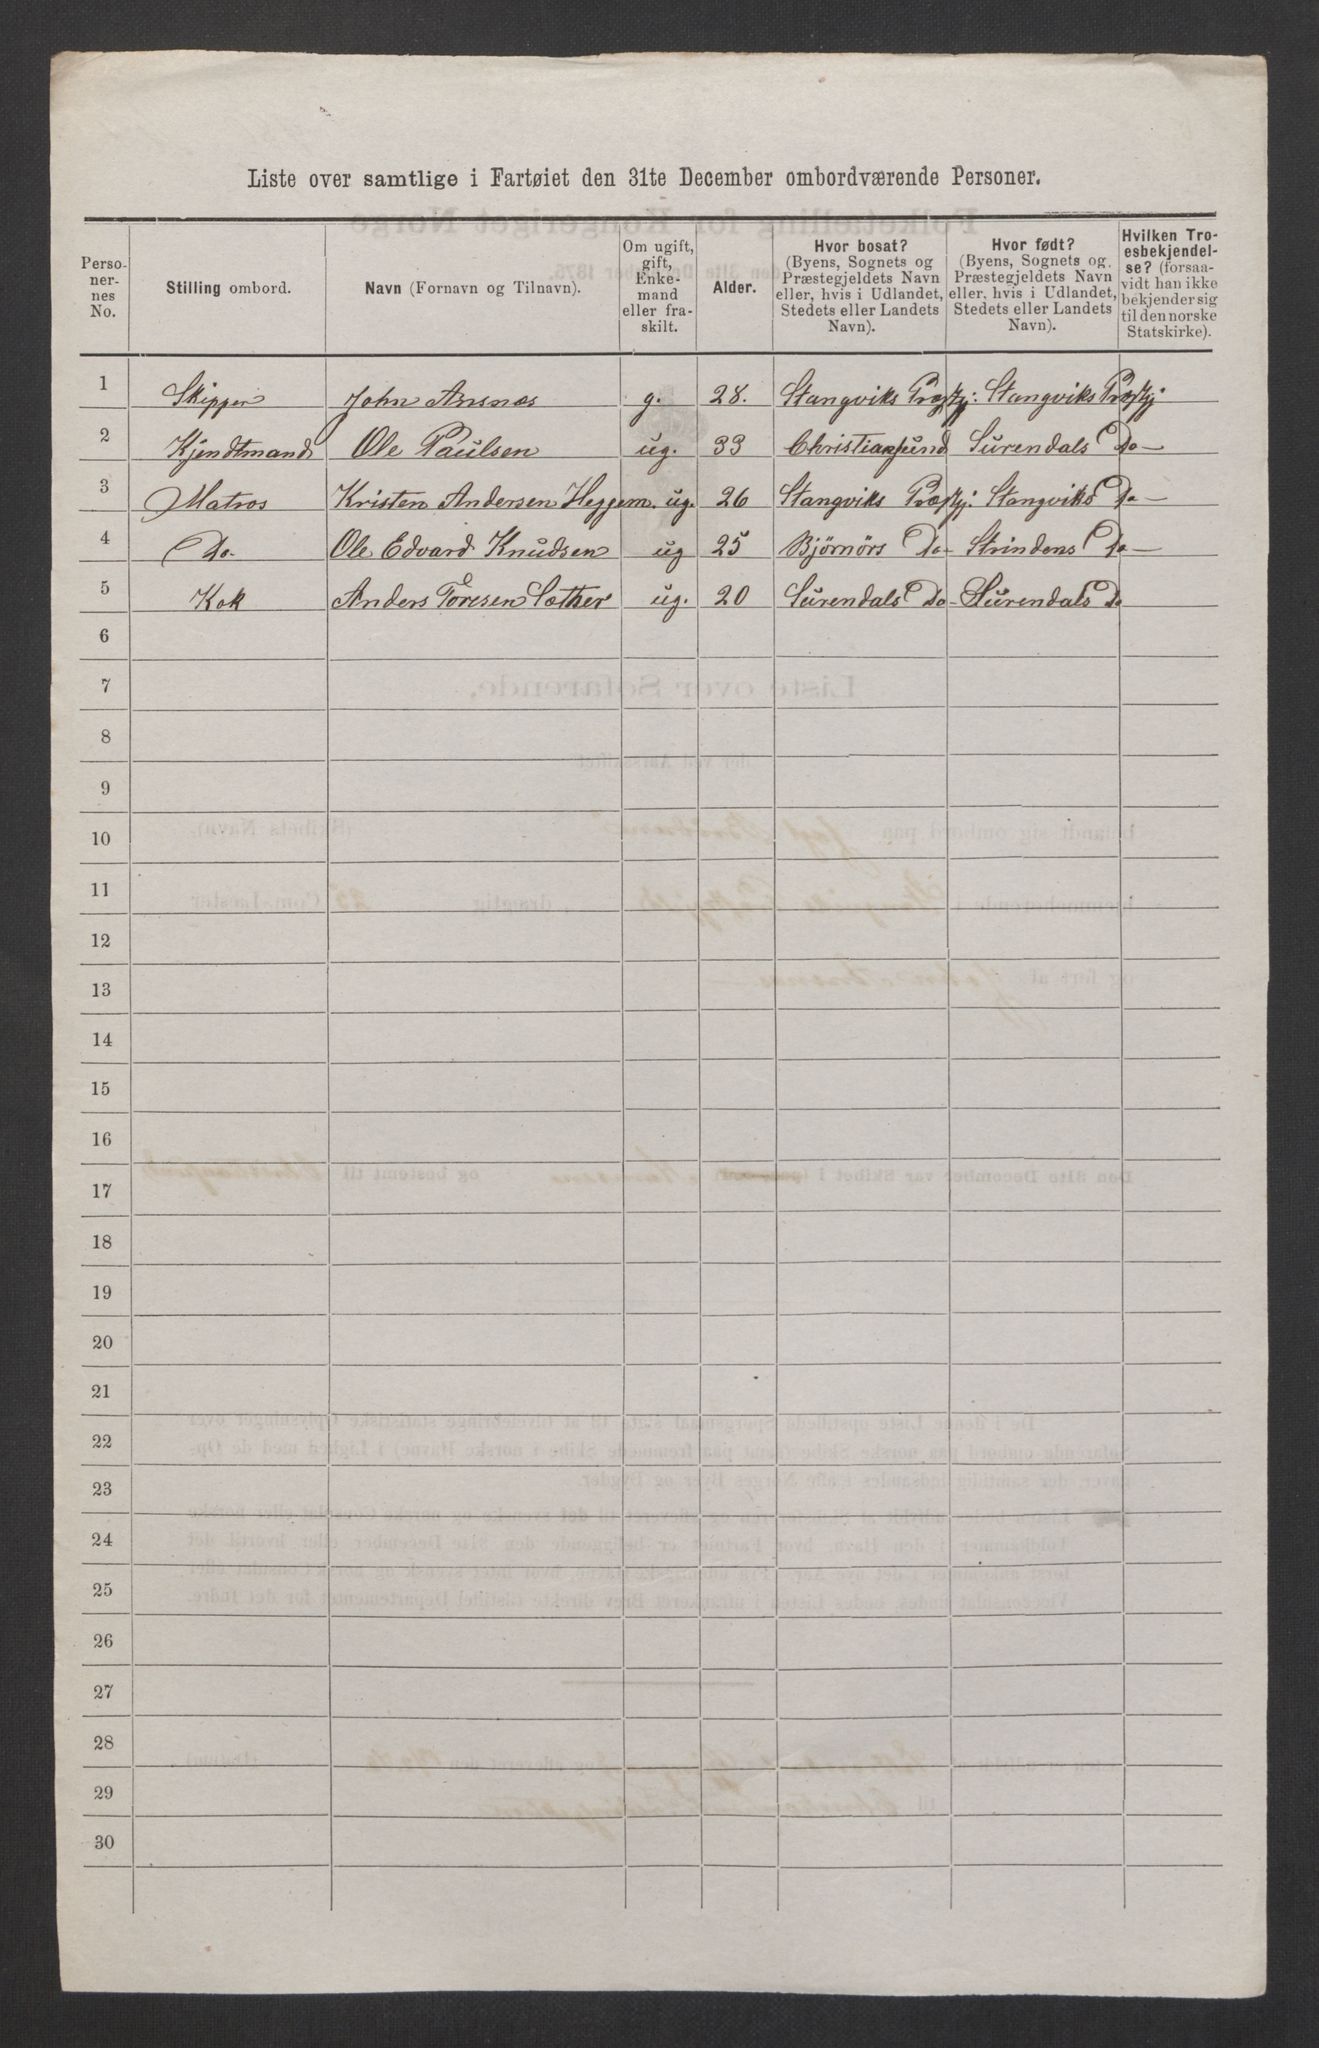 Liste over samtlige i Fartøiet den 31te December ombordværende Personer.
Perso-
ner-
nes
No.
Stilling ombord.
Navn (Fornavn og Tilnavn).
Om ugift,
gift,
Enke-
mand
eller fra-
skilt.
Alder.
Hvor bosat?
(Byens, Sognets og
Præstegjeldets Navn
eller, hvis i Udlandet,
Stedets eller Landets
Navn).
Hvor født?
(Byens, Sognets og
Præstegjeldets Navn
eller, hvis i Udlandet,
Stedets eller Landets
Navn).
Hvilken Tro-
esbekjendel-
se? (forsaa-
vidt han ikke
bekjender sig
til den norske
Statskirke).
1 Skipper John Ansnæs g. 28. Stangviks Præstgj. Stangviks Præstgj
2 Kjendtmand Ole Paulsen ug. 33 Christiansund Surendals Do —
3 Matros Kristen Andersen Heggem. ug. 26 Stangviks Præstgj. Stangviks Do —
4 Do- Ole Edvard Knudsen ug 25 Bjørnørs Do- Strindens Do —
5 Kok Anders Toresen Sæther ug. 20 Surendals Do- Surendals Do
6
7
8
9
10
11
12
13
14
15
16
17
18
19
20
21
22
23
24
25
26
27
28
29
30